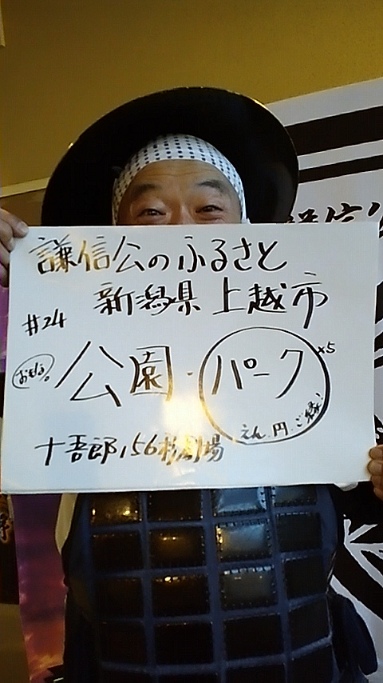 謙信公のふるさと
新潟県上越市
#24
公園・パーク ×5
えん 円 ご縁!
十吾郎156劇場